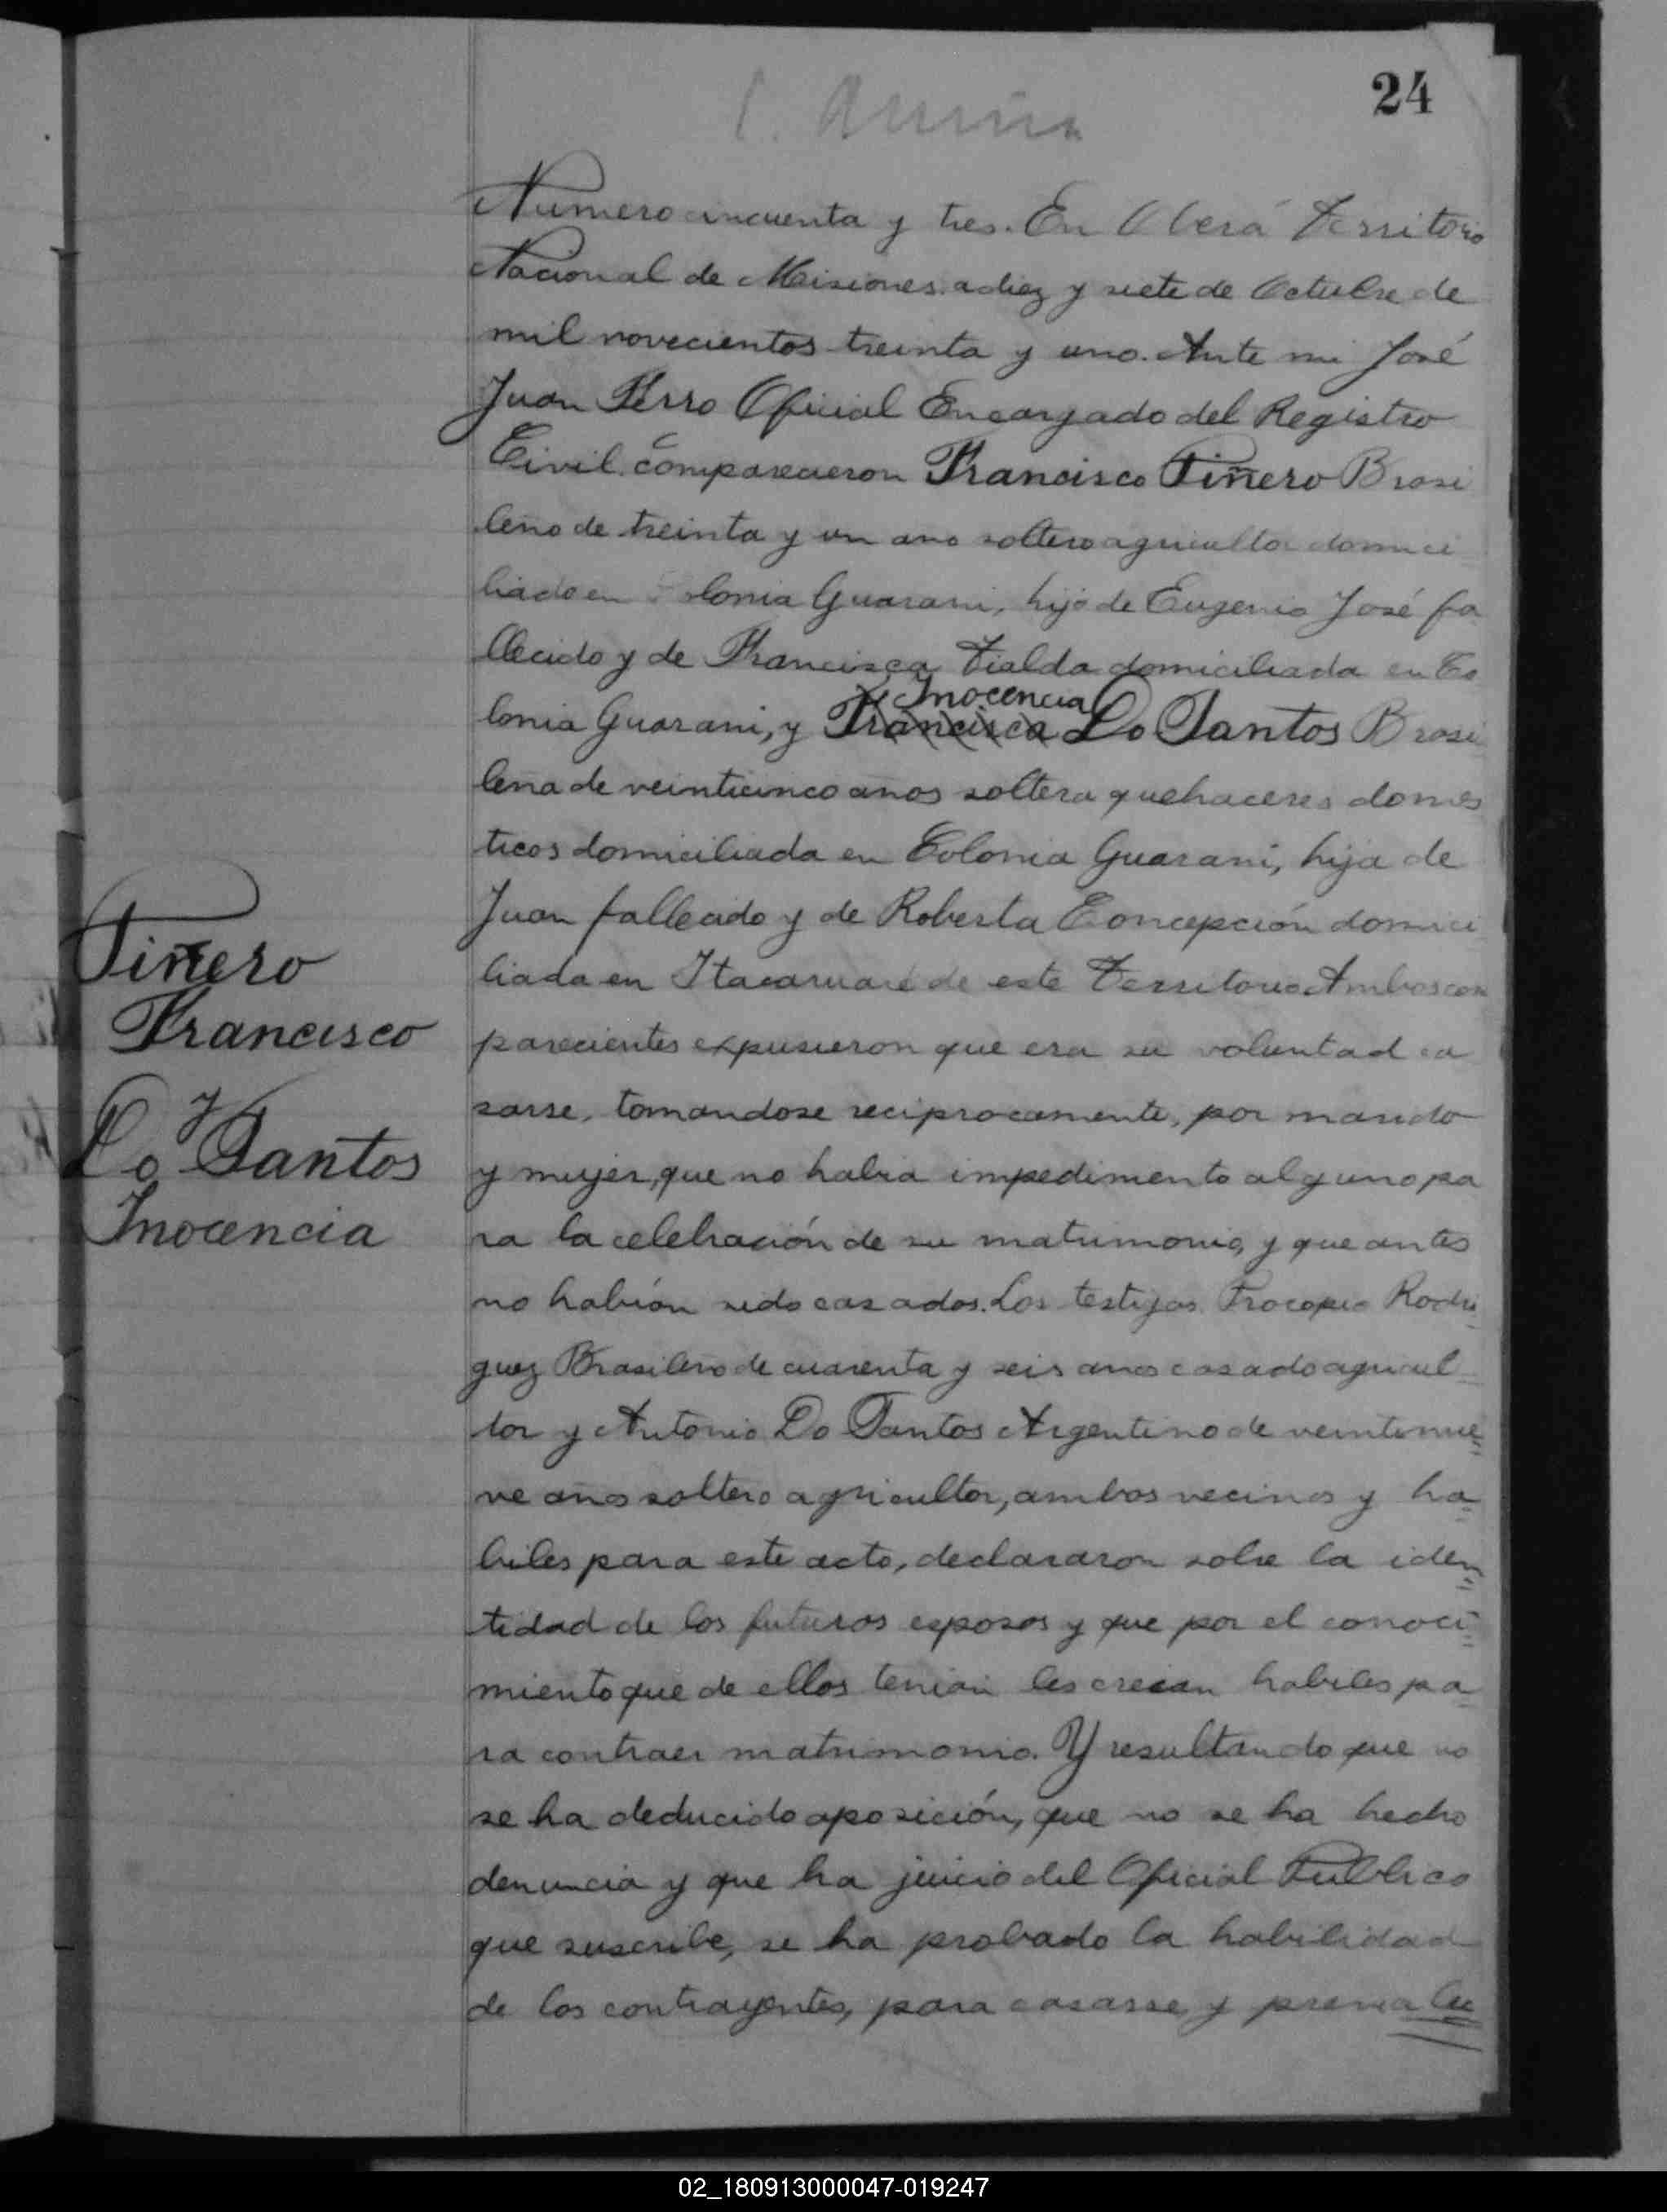 24
Numero cincuenta y tres. En Oberá Territorio
Nacional de Misiones a diez y siete de Octubre de
mil novecientos treinta y uno. Ante mi José
Juan Perro Oficial Encargado del Registro
Civil. comparecieron Francisco Piñero Brasi
leño de treinta y un ano soltero agricultor domici
liado en Colonia Guarani, hijo de Eugenio José fa
llecido y de Francisca Fialda domiciliada en Co
lonia Guarani, y Francisca Inocencia Do Santos Brasi
leña de veinticinco años soltera quehaceres domes
ticos domiciliada en Colonia Guarani, hija de
Juan fallecido y de Roberta Concepción domici
liada en Itacaruaré de este Territorio Ambos com
parecientes expusieron que era su voluntad ca
sarse, tomandose reciprocamente, por marido
y mujer, que no habia impedimento alguno pa
ra la celebración de su matrimonio, y que antes
no habión sido casados. Los testigos Procopio Rodri
guez Brasileño de cuarenta y seis anos casado agricul
tor y Antonio Do Santos Argentino de veintinue
ve años soltero agricultor, ambos vecinos y ha
biles para este acto, declararon sobre la iden
tidad de los futuros esposos y que por el conoci
miento que de ellos tenian les creian habiles pa
ra contraer matrimonio. Y resultando que no
se ha deducido oposición, que no se ha hecho
denuncia y que ha juicio del Oficial Publico
que suscribe, se ha probado la habilidad
de los contrayentes, para casarse y previa lec
Piñero
Francisco
y
Do Santos
Inocencia
02_180913000047-019247